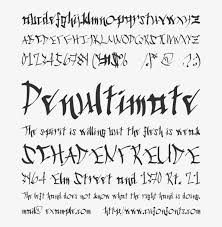 abcdefghijklmnopqrstuvwxyz
ABCDEFGHIJKLMNOPQRSTUVWXYZ
Penultimate
The spirit is willing but the flesh is weak
SCHADENFREUDE
3964 Elm Street and 1370 Rt. 21
The left hand does not know what the right hand is doing.